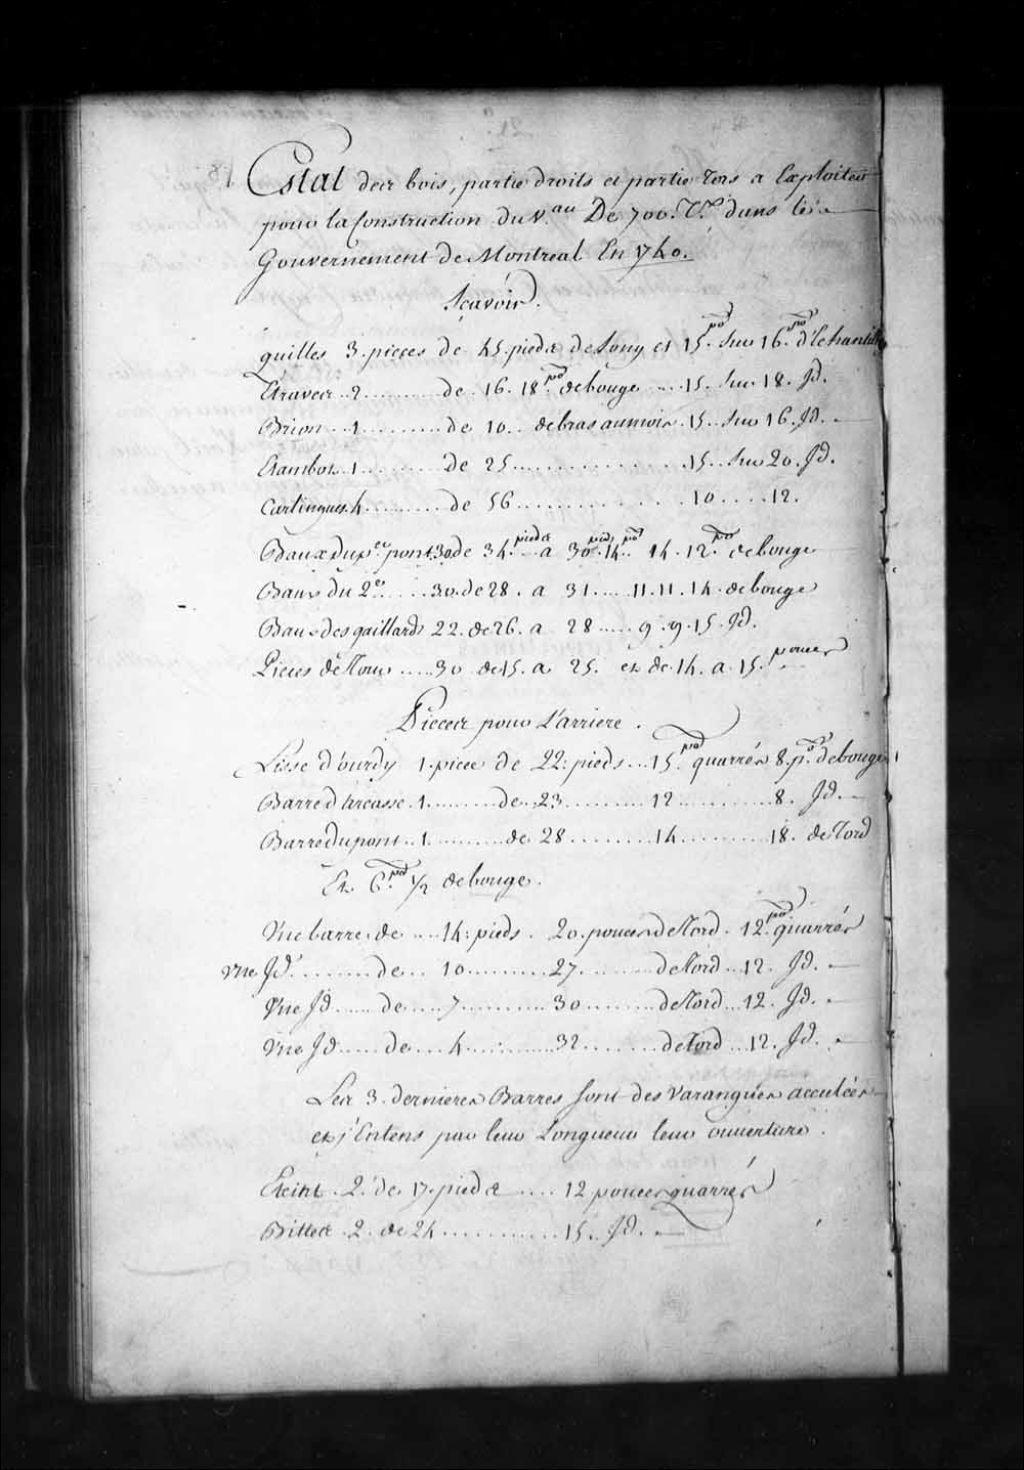 Estat des bois, partie droits et partie tors a Exploiter
pour la Construction du V.au De 700. T.x dans le
Gouvernement de Montreal En 1740.
Sçavoir.
quilles 3. pieces de 45. pieds de Long et 15.po Sur 16.po d'Echantill
Etraves 2......... de 16. 18.po de bouge .... 15. Sur 18. Jd.
Brion .. 1......... de 10.. de bras au moins. 15.. Sur 16. Jd.
Etambot 1........ de 25............... 15.. Sur 20. Jd.
Carlingues. 4........ de 56............... 10.... 12.
Baux du p.er pont 30 de 34.pieds a 30.pieds. 14..po 14. 12.po de bouge
Baux du 2.e .... 30. de 28. a 31..... 11. 11. 14. de bouge
Baux des gaillards 22. de 26. a 28..... 9. 9. 15. Jd.
Pieces de Tour ..... 30 de 15. a 25. et de 14. a 15. pouces
Pieces pour L'arriere.
Lisse d'ourdy 1. piece de 22: pieds... 15.po quarrés 8. po. de bouge
Barre d'Arcasse. 1......... de. 23......... 12........... 8. Jd.
Barre du pont.. 1.......... de 28......... 14.......... 18. de Tord
Et 6.po 1/2 de bouge.
Une barre. de .... 14: pieds. 20. pouces de Tord. 12.po quarrés
Une Jd......... de... 10......... 27......... de Tord... 12. Jd.
Une Jd...... de..... 7.......... 30........ de Tord... 12. Jd.
Une Jd..... de.... 4........... 32........ de Tord... 12. Jd.
Les 3. dernieres Barres sont des Varangues acculées
et j'Entens par leur Longueur leur ouverture.
2. de 17. pieds .... 12 pouces quarrés
Bittes. 2. de 24........... 15. Jd.